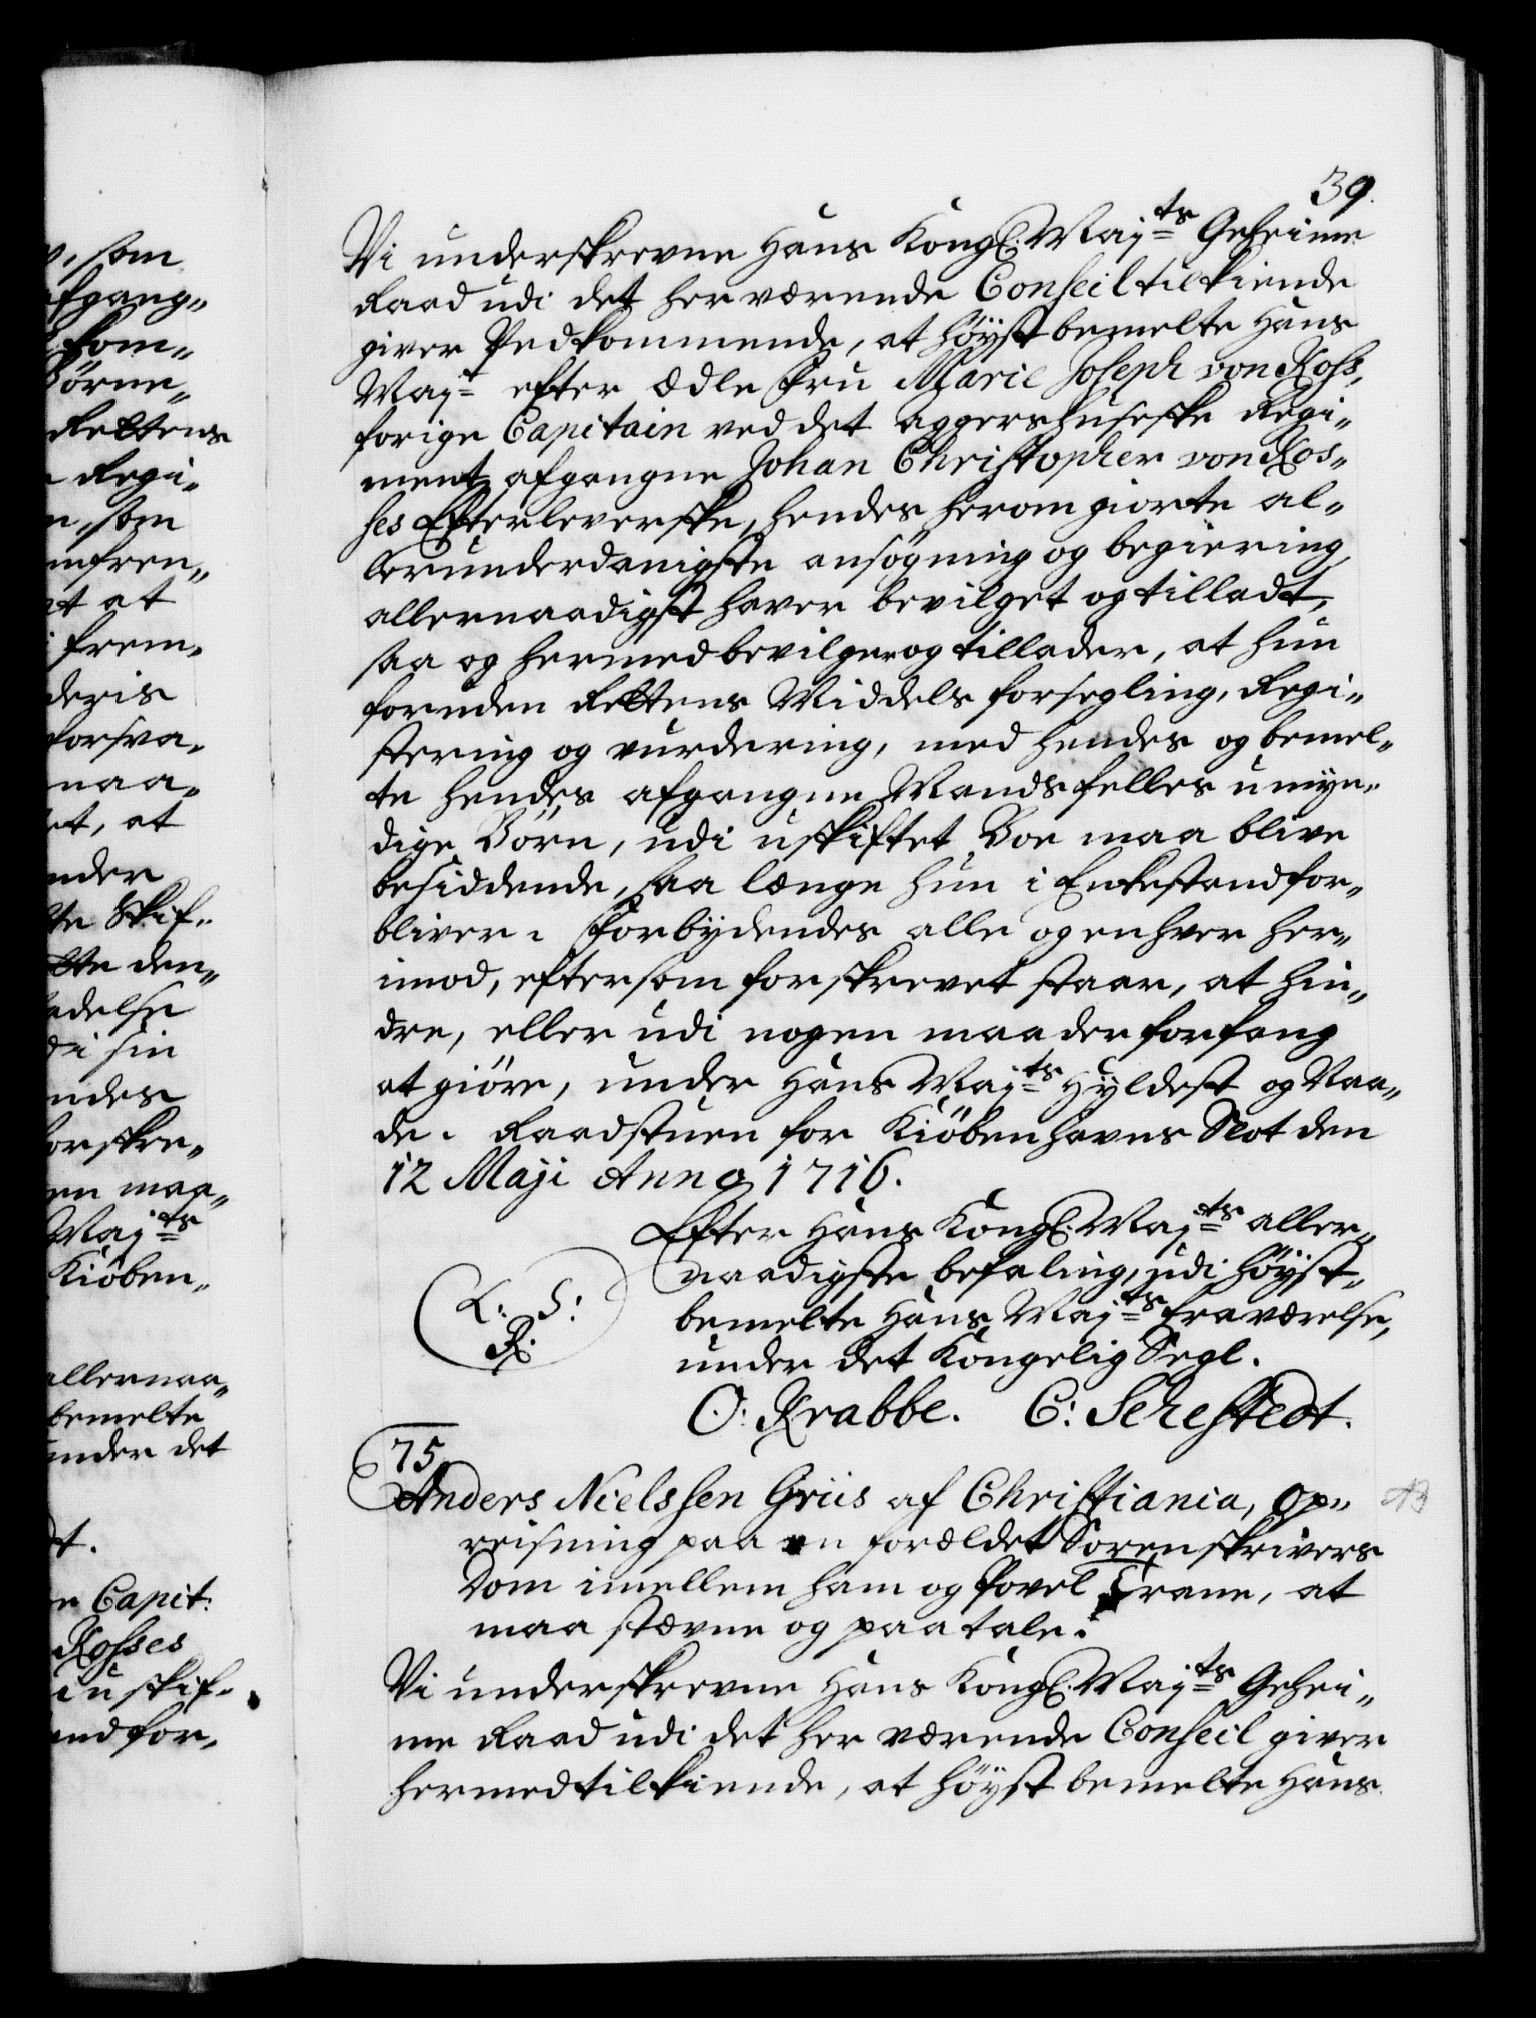 39.
Vi underskrevne Hans Kongl. Maj:ts Geheime
Raad udi det herværende Conseil tilkiende
giver Vedkommende, at höyst bemelte Hans
Maj:t efter Ædle Fru Marie Joseph von Ross,
forige Capitain ved det aggershusiske Regi„
ment afgangne Johan Christopher von Ros„
ses Efterleverske, hendes herom giorte al„
lerunderdanigste ansøgning og begiering,
allernaadigst haver bevilget og tilladt,
saa og hermed bevilger og tillader, at hun
foruden Rettens Middels forsegling, Regi„
stering og vurdering, med hendes og bemel„
te hendes afgangne Mands felles umyn„
dige Börn, udi uskiftet Boe maa blive
besiddende, saa længe hun i Enkestand for„
bliver. Forbydendes alle og enhver her„
imod, eftersom forskrevet staar, at hin„
dre, eller udi nogen maade forfang
at giöre, under Hans Maj:ts Hyldest og Naa„
de. Raadstuen for Kiöbenhavns Slot den
12 Maji Anno 1716.
Efter Hans Kongl. Maj:ts aller„
naadigste befaling, udi höyst„
bemelte Hans Maj:ts fraværelse,
under det Kongelig Segl.
L: S:
R:
O: Krabbe. C: Sehestedt.
75.
Anders Nielssen Griis af Christiania, Op„
reisning paa en forældet Sorenskrivers
Dom imellem ham og Povel Trane, at
maa stævne og paatale.
Vi underskrevne Hans Kongl. Maj:ts Gehei„
me Raad udi det her værende Conseil giver
hermed tilkiende, at höyst bemelte Hans
, som
afgang„
kom„
Börne„
Rettens
Regi„
, som
at
frem„
deris
forsva„
naa„
et, at
under
te Skif„
den„
adelse
di sin
endes
forskre„
en maa„
Maj:ts
Kiöben„
allernaa„
bemelte
under det
t.
Capit:
Rosses
i uskif„
and for„